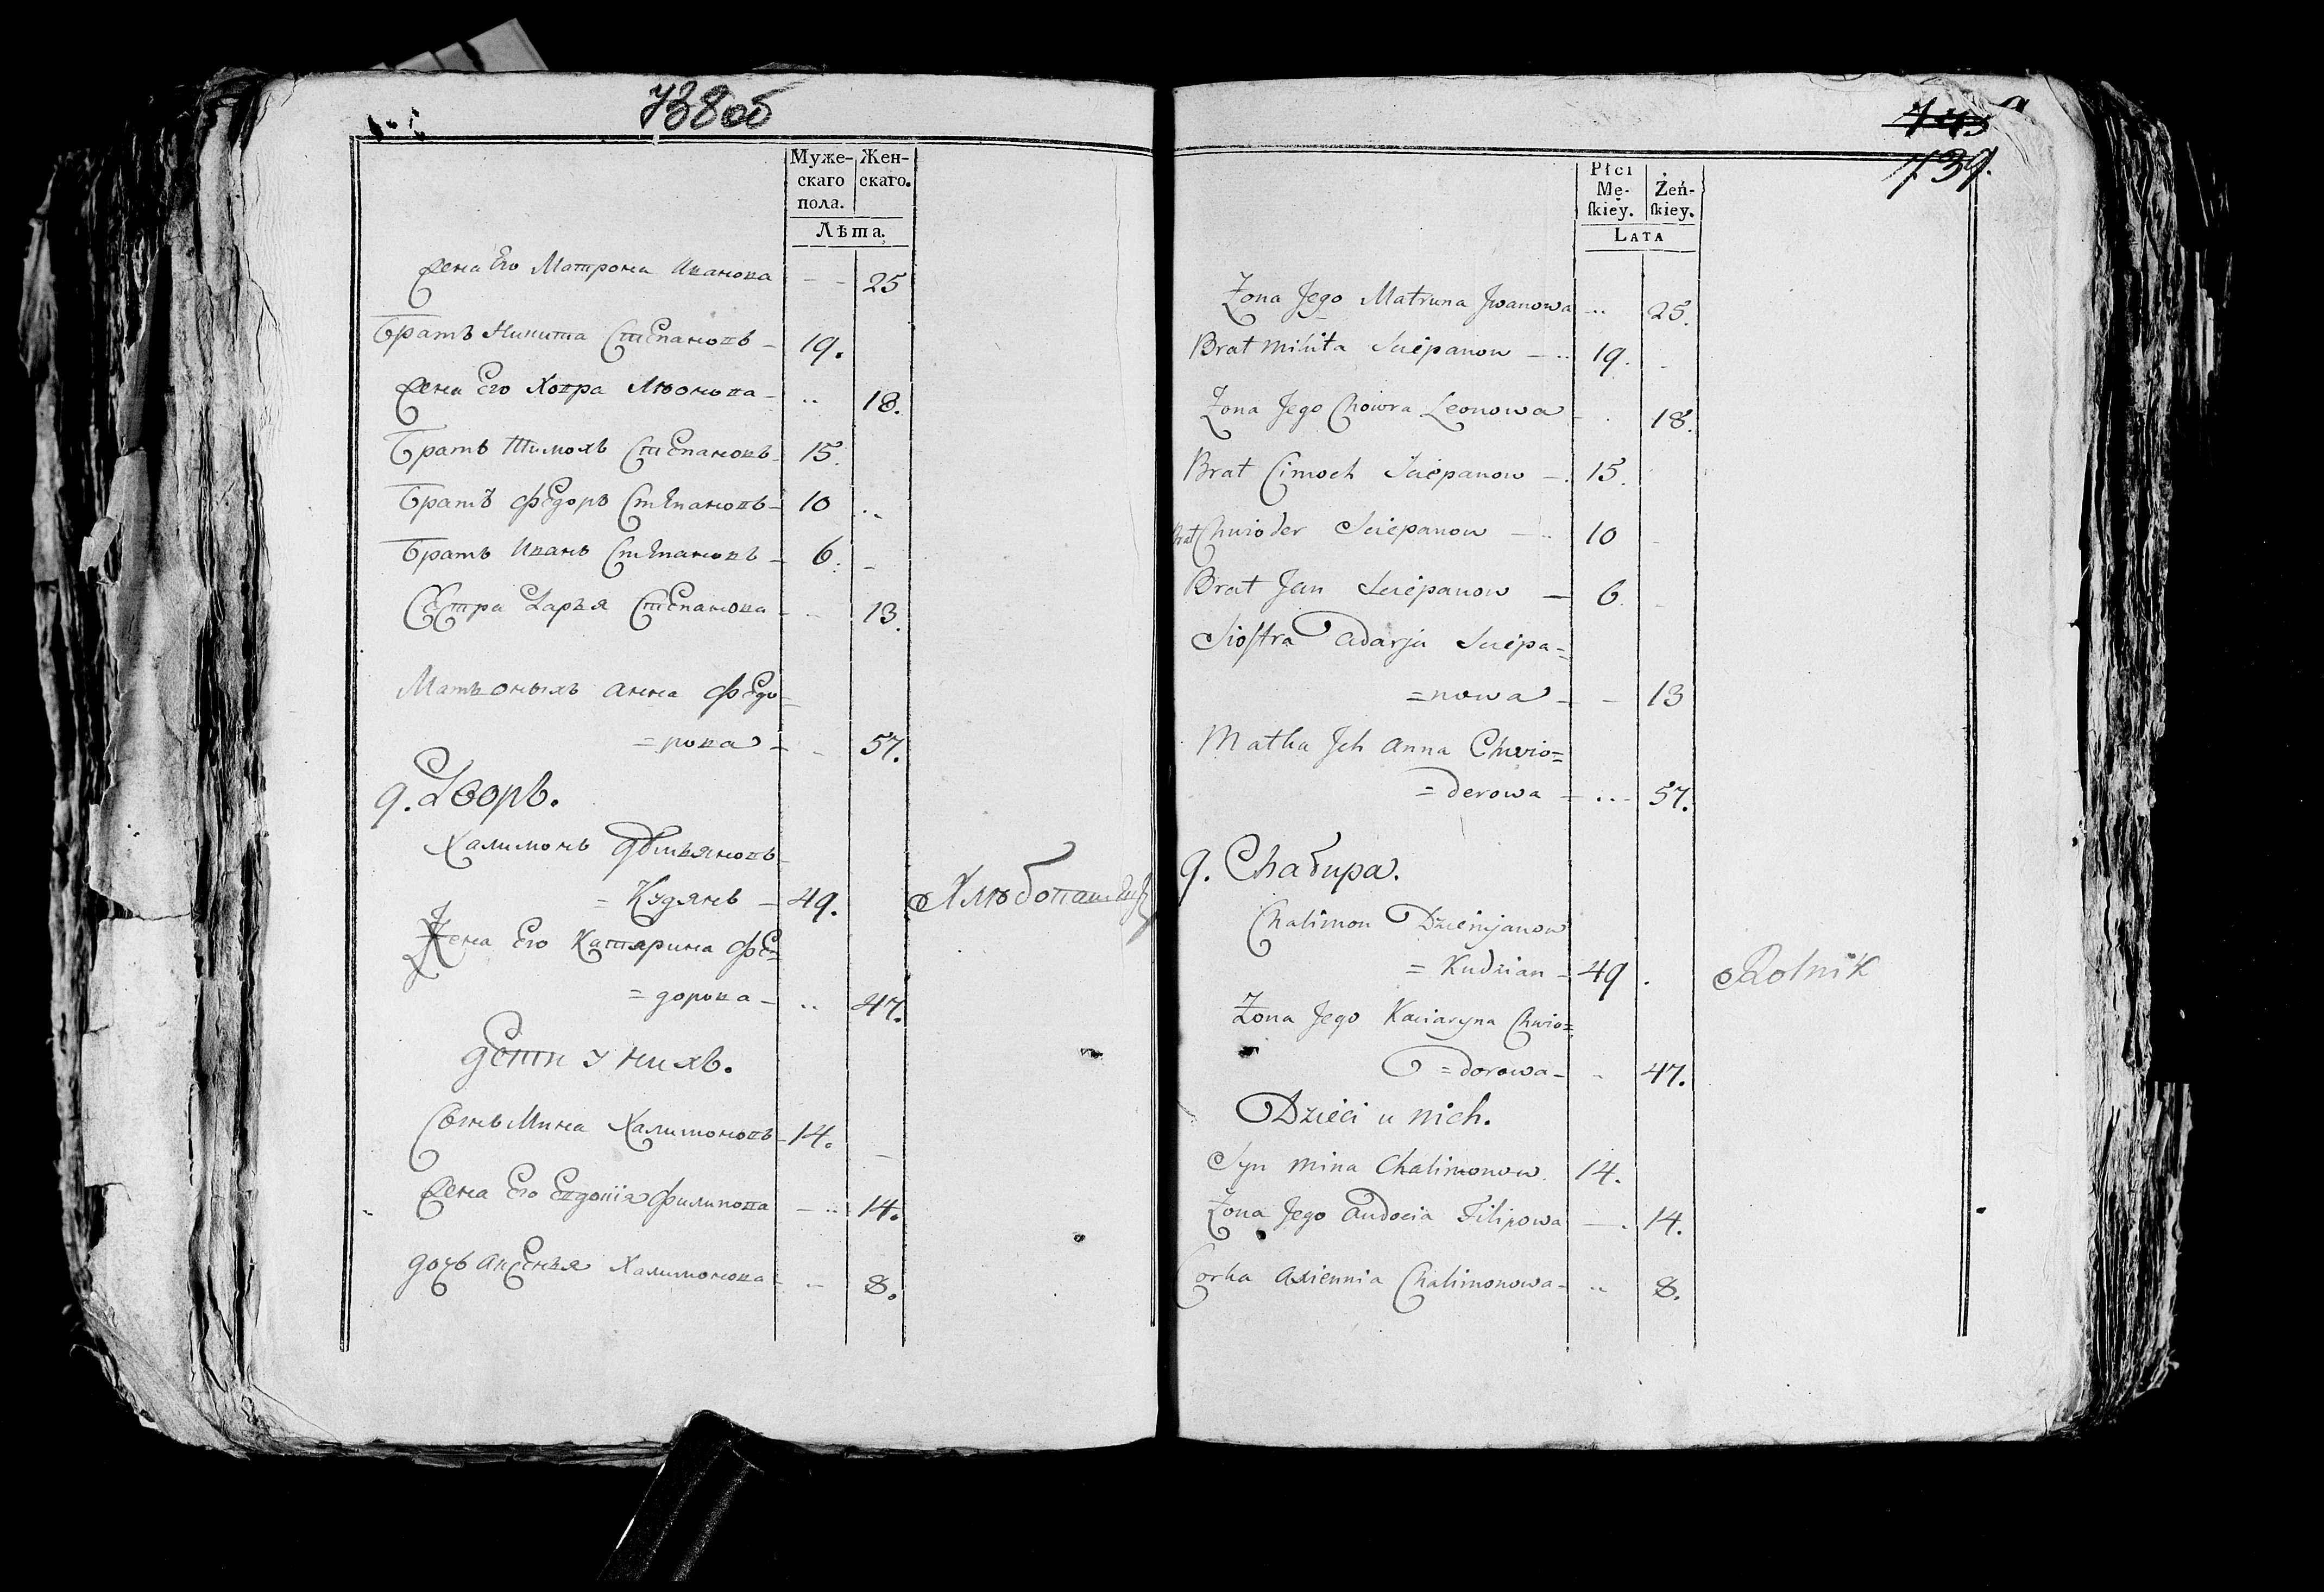 738об
Муже- Жен-
скаго скаго.
пола.
Лѣта.
Жена Его Матрона Иванова - - 25
Братъ Никита Степановъ - 19.
Жена Его Ховра Лѣонова - .. 18.
Братъ Тимохъ Степановъ 15.
Братъ Федоръ Степановъ - 10 ..
Братъ Иванъ Степановъ - 6. -
Сестра Дарья Степанова - .. 13.
Матьоныхъ Анна Федо=
=рова - - 57.
9. Дворъ.
Халимонъ Демьяновъ
= Кудянъ - 49.
Жена Его Катярина Фе=
=дорова - .. 47.
Дети у нихъ.
Сынъ Мина Халимоновъ - 14. -
Жена Его Евдокія Филипова - .. 14.
Дочь Аксенья Халимонова - .. 8.
743
739.
Płci
Mę- Żeń-
skiey. skiey.
LATA
Żona Jego Matruna Jwanowa .. 25.
Brat Mikita Sciepanow - .. 19. -
Żona Jego Chowra Leonowa - . 18.
Brat Cimoch Sciepanow - . 15.
Brat Chwioder Sciepanow - .. 10 -
Brat Jan Sciepanow - 6. -
Siostra Adarja Sciepa=
=nowa - - 13
Matka Jch Anna Chwio=
=derowa - ... 57.
9. Chałupa.
Chalimon Dziemjanow
= Kudzian - 49 . Rolnik
Żona Jego Kaciaryna Chwio=
=dorowa - - 47.
Dzieci u nich.
Syn Mina Chalimonow. 14.
Żona Jego Audocia Filipowa - . 14.
Corka Axiennia Chalimonowa - .. 8.